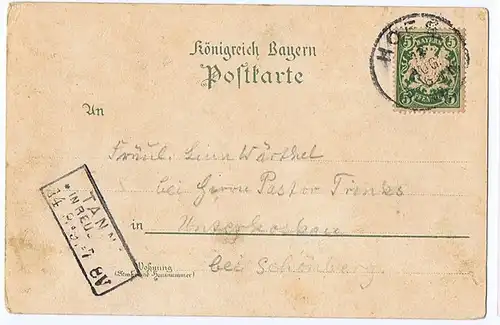 Königreich Bayern
Postkarte
An
Fräul. Lina Wärthel
bei Herrn Pastor Trinks
in Unterkoskau
bei Schönberg
Wohnung
(Straße und Hausnummer)
HOF
5 BAYERN 5
5 PFENNIG 5
TANNA